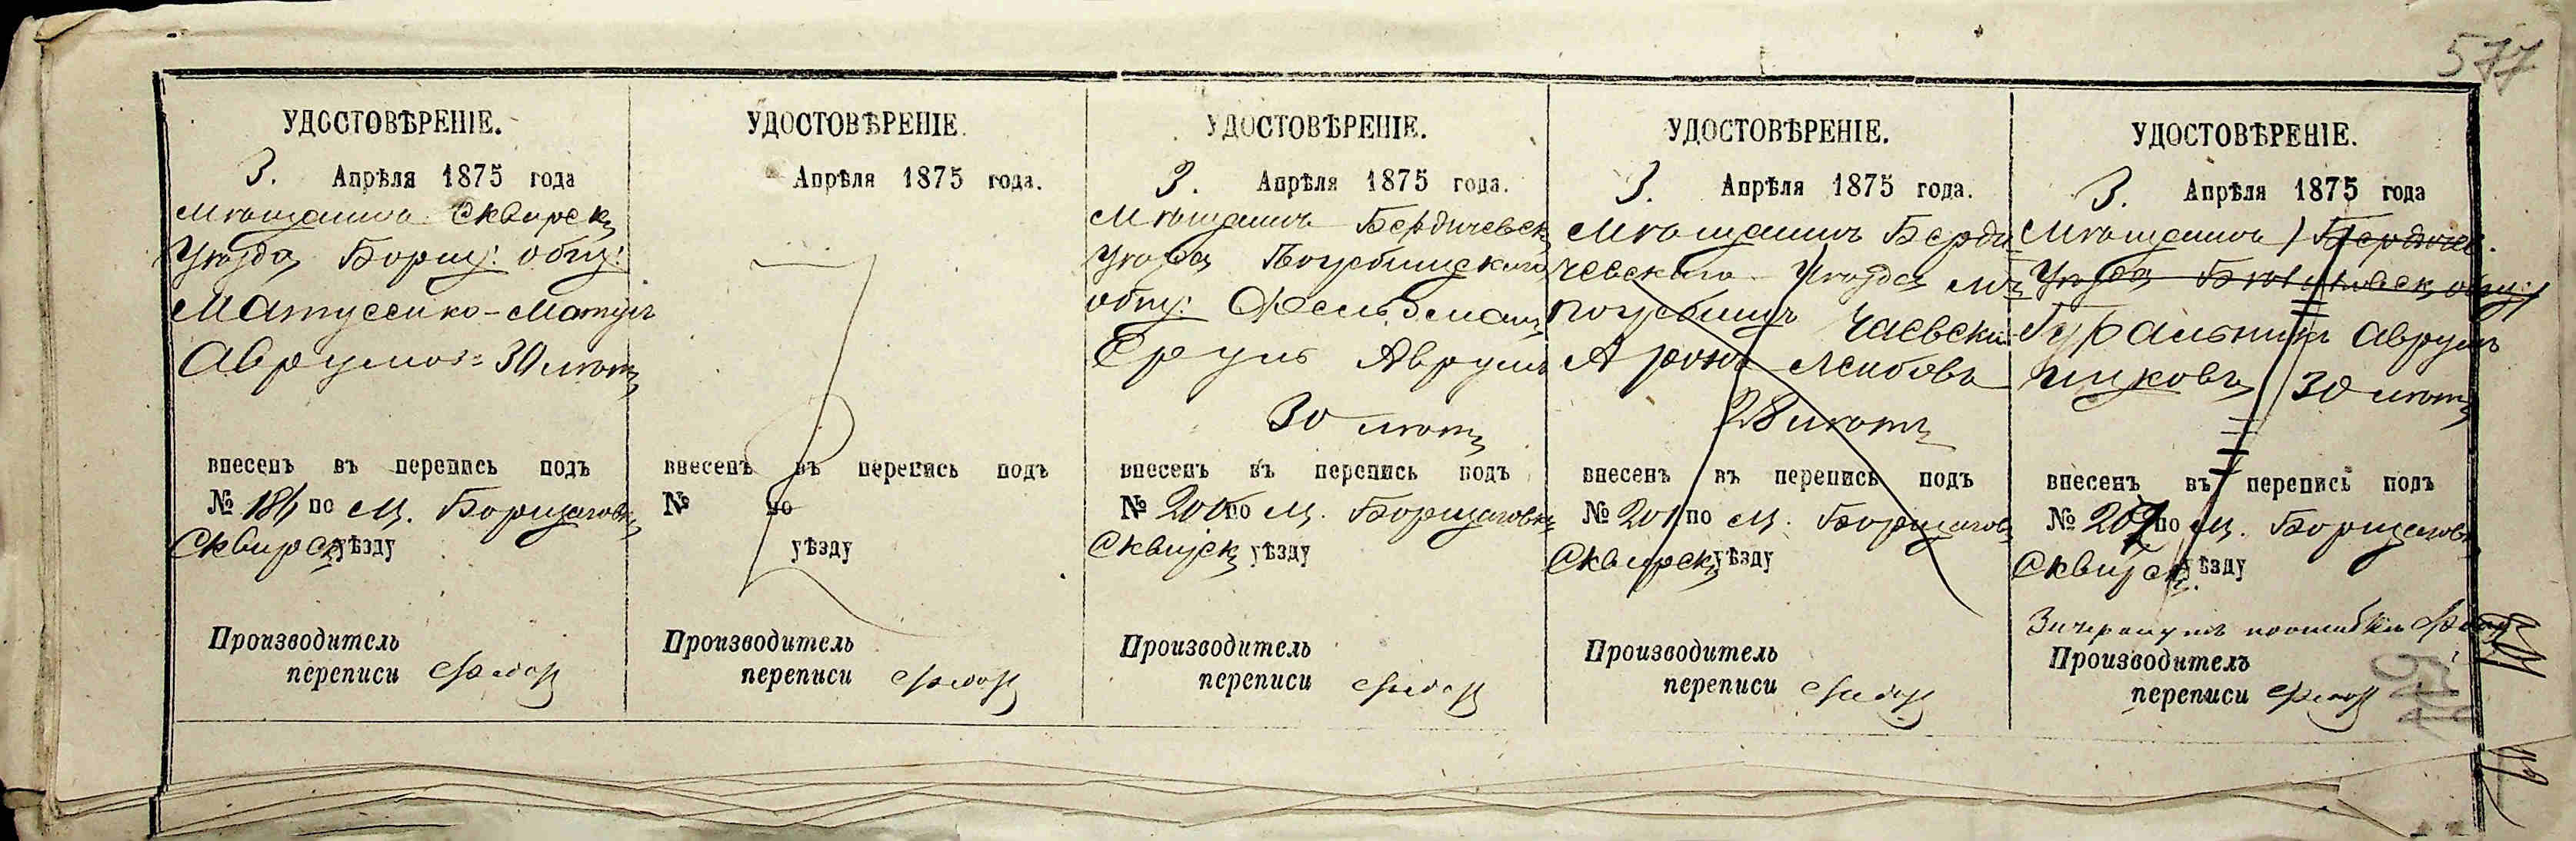 577
УДОСТОВѢРЕНІЕ.
3. Апрѣля 1875 года
Мѣщанинъ Сквирск
Уѣзда Борщ: общ:
Матусенко-Мотуль
Аврумов= 30 лѣтъ
внесенъ въ перепись подъ
№ 186 по м. Борщаговк
Сквирск уѣзду
Производитель
переписи
УДОСТОВѢРЕНІЕ.
Апрѣля 1875 года.
внесенъ въ перепись подъ
№ по
уѣзду
Производитель
переписи
УДОСТОВѢРЕНІЕ.
3. Апрѣля 1875 года.
Мѣщанинъ Бердичевск
Уѣзда Погребищскаго
общ: Фельдман
Сруль Аврум
30 лѣтъ
внесенъ въ перепись подъ
№ 200 по м. Борщаговк
Сквирск уѣзду
Производитель
переписи
УДОСТОВѢРЕНІЕ.
3. Апрѣля 1875 года.
Мѣщанинъ Берди
чевскаго Уѣзда м.
Погребищъ Чаевски
Аронъ Лейбовъ
28 лѣтъ
внесенъ въ перепись подъ
№ 201 по м. Борщагов
Сквирск уѣзду
Производитель
переписи
УДОСТОВѢРЕНІЕ.
3. Апрѣля 1875 года
Мѣщанинъ Бердичев.
Уѣзда общ:
Гуральник Аврум
Ицковъ 30 лѣтъ
внесенъ въ перепись подъ
№ 207 по м. Борщаговк
Сквирск уѣзду
Зачеркнутъ по ошибкѣ
Производитель
переписи